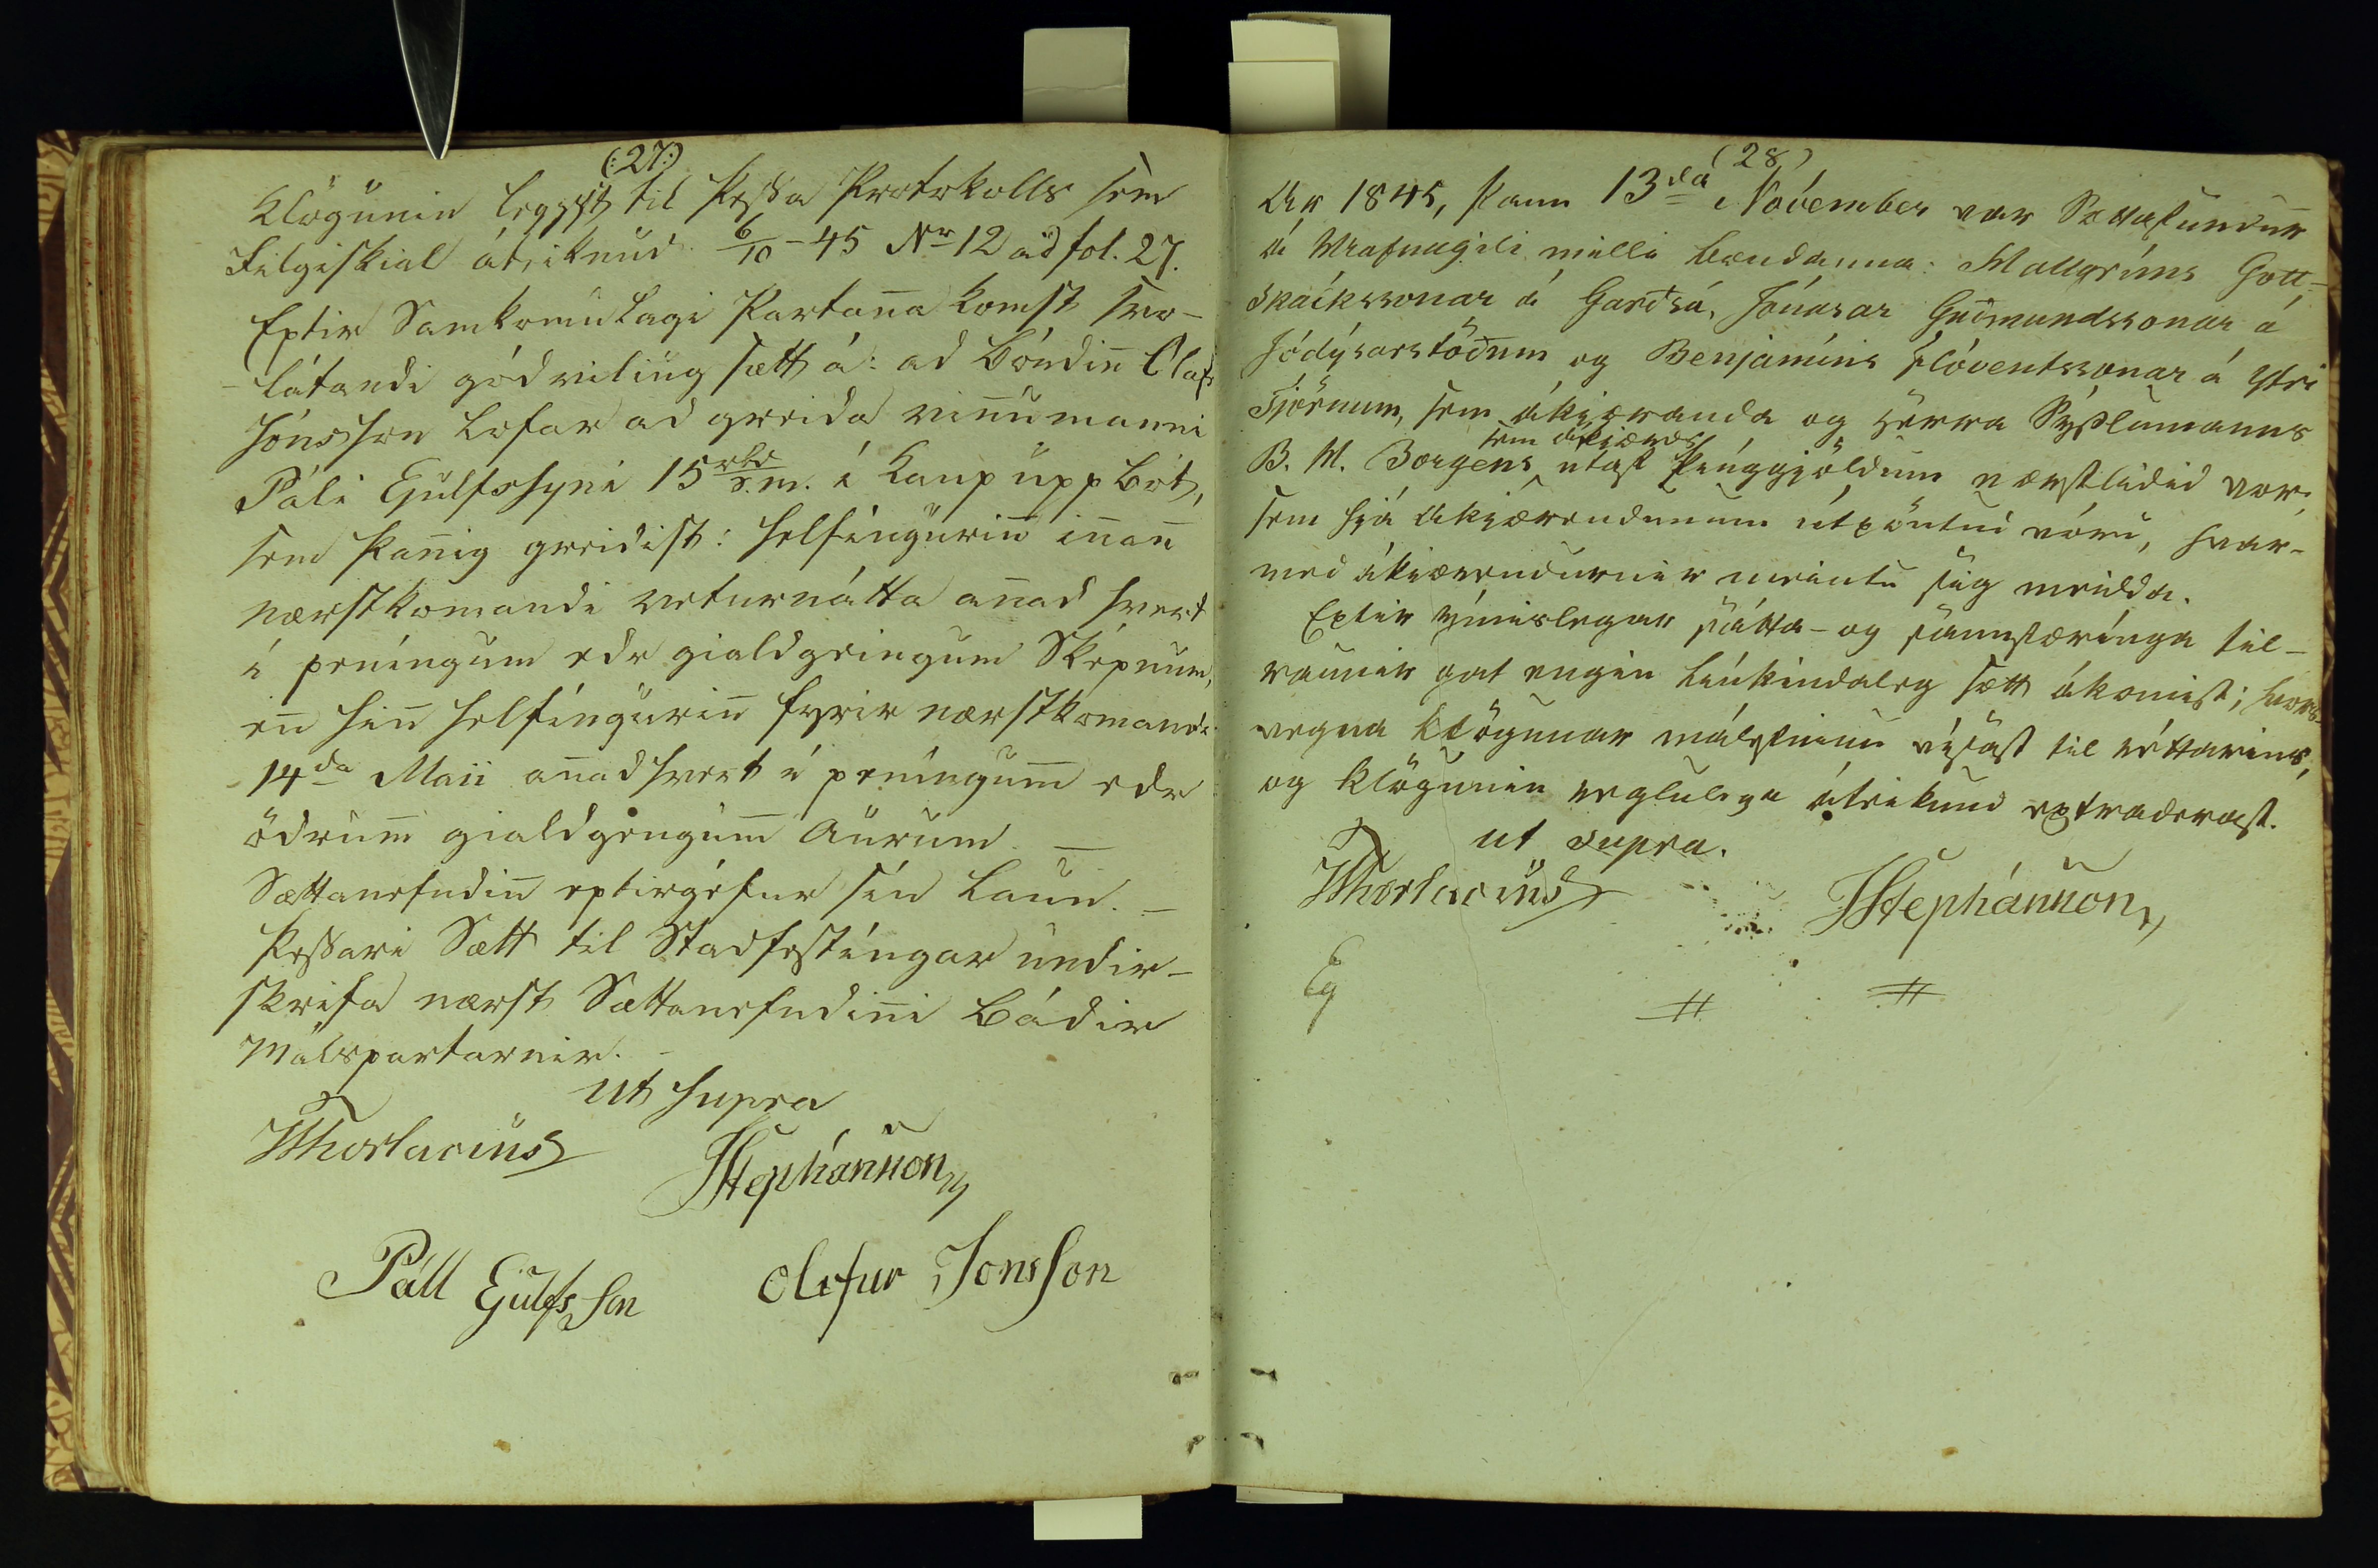 (:27:)
Klögunin leggst til þessa Protokolls sem
Filgiskial áteiknud 6/10-45 Nr 12 ad fol. 27.
Eptir Samkomulagi Partanna komst svo-
-látandi gódviliug sætt á: ad bóndinn Olafr
Jónsson lofar ad greida vinnumanni
Páli Ejulfssyni 15 rbd s.m. í Kaup uppbót,
sem þannig greidist: helfingurinn innann
næstkomandi veturnátta annad hvert
í peníngum edr gialdgeingum Sképnum,
enn hinn helfíngurinn fyrir næstkomandi
14da Maii annadhvert í peníngum edr
ödrum gialdgengum Aurum. —
Sættanefndinn eptirgéfur sín laun. —
Þessari Sætt til Stadfestíngar undir-
skrifa næst Sættanefndinni bádir
Málspartarnir. -
ut supra
Thorlacius
JStephánsson
Páll Ejulfs son
Olafur Jonsson
(28)
Ar 1845, þann 13da Nóvember var Sættafundur
á Hrafnagili milli bændanna: Hallgríms Gott-
skálkssonar á Garðsá, Jónasar Guðmundssonar á
Jódýsarstöðum og Benjamíns Flóventssonar á Ytri
Tjörnum, sem ákjæranda og herra Sýslumanns
sem ákjærds
B. A. Borgens útaf þínggjöldum næstlidid vor,
sem hjá Akjærendunum útpöntuð vóru, hvar-
med ákjærendurnir meintu sig meidda.
Eptir ýmislegar sátta- og sannfæringa til-
raunir gat engin línkindaleg sætt ákomist; hvers-
vegna klögunar málefninu vísast til réttarins,
og klögunin reglulega áteiknud extraderast.
ut supra.
Thorlacius
JStephánsson